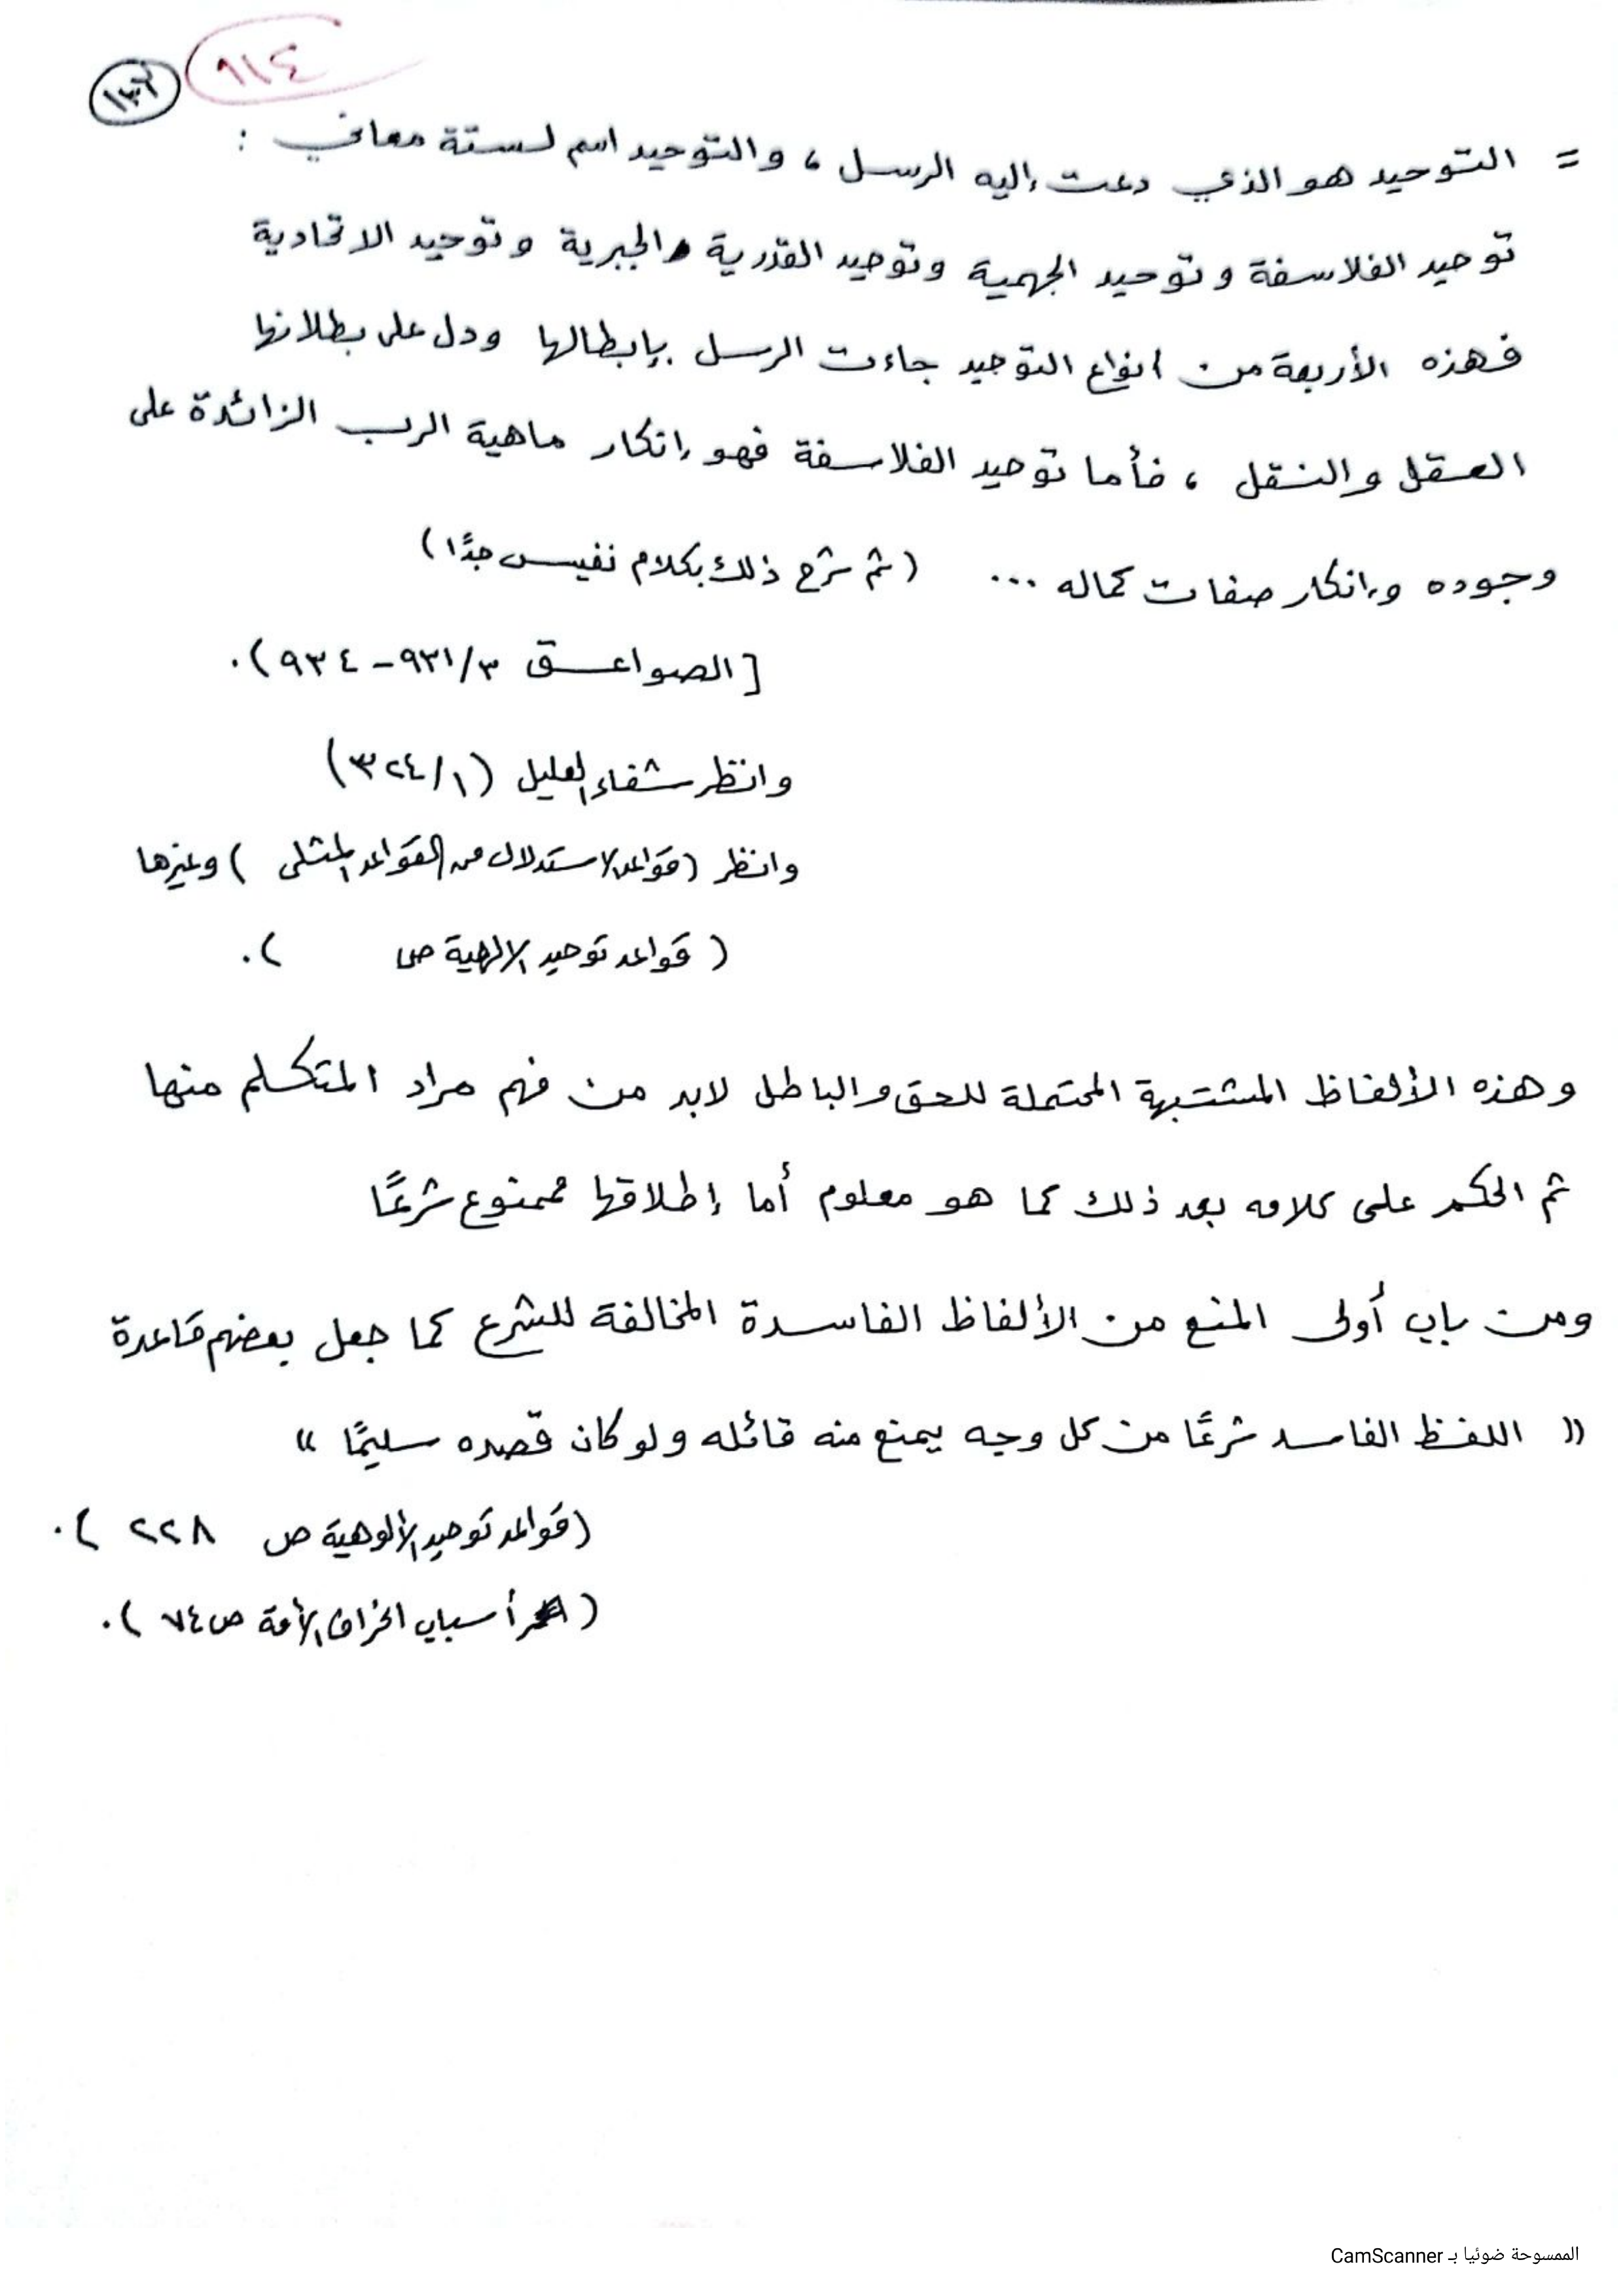 ٩١٤
= التوحيد هو الذي دعت إليه الرسل ، والتوحيد اسم لستة معاني :
توحيد الفلاسفة وتوحيد الجهمية وتوحيد القدرية والجبرية وتوحيد الاتحادية
فهذه الأربعة من انواع التوحيد جاءت الرسل بإبطالها ودل على بطلانها
العقل والنقل ، فأما توحيد الفلاسفة فهو إنكار ماهية الرب الزائدة على
وجوده وإنكار صفات كماله ... (ثم شرح ذلك بكلام نفيس جدًا)
[الصواعق ٣/٩٣١ - ٩٣٤).
وانظر شفاء العليل (١/٣٢٤)
وانظر (قواعد الاستدلال من القواعد المثلى ) وغيرها
( قواعد توحيد الالهية ص ).
وهذه الألفاظ المشتبهة المحتملة للحق والباطل لابد من فهم مراد المتكلم منها
ثم الحكم على كلامه بعد ذلك كما هو معلوم أما إطلاقها فممنوع شرعًا
ومن باب أولى المنع من الألفاظ الفاسدة المخالفة للشرع كما جعل بعضهم قاعدة
(( اللفظ الفاسد شرعًا من كل وجه يمنع منه قائله ولو كان قصده سليمًا ))
(قواعد توحيد الألوهية ص ٢٢٨ ).
( أسباب انحراف الأمة ص ٧٤ ).
الممسوحة ضوئيا بـ CamScanner